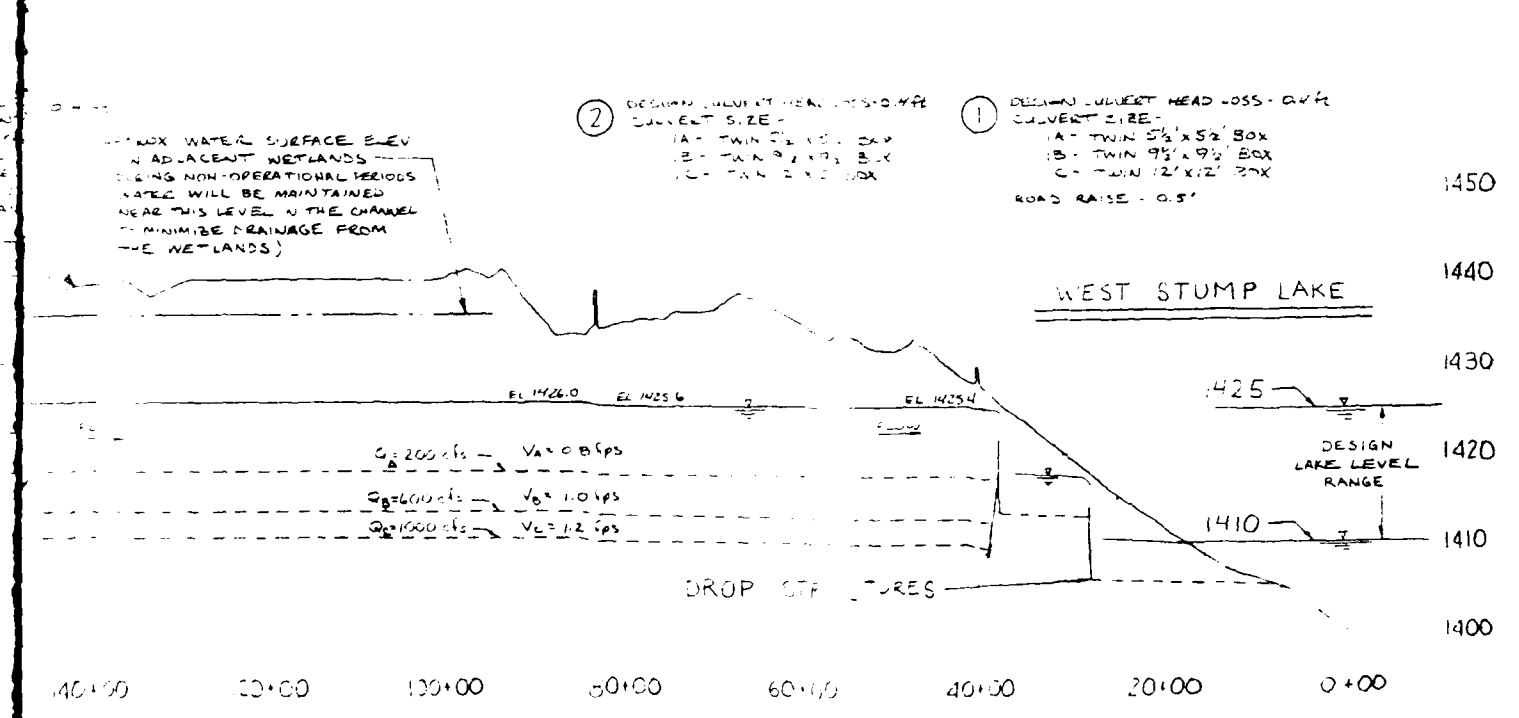 WATER SURFACE ELEV
ADJACENT WETLANDS
NON-OPERATIONAL PERIODS
WATER WILL BE MAINTAINED
NEAR THIS LEVEL IN THE CHANNEL
MINIMIZE DRAINAGE FROM
THE WETLANDS)
2
DESIGN CULVERT HEAD LOSS - 0.4 ft
CULVERT SIZE -
1A - TWIN 5½ x 5½ BOX
B - TWIN 9½ x 9½ BOX
TWIN BOX
1
DESIGN CULVERT HEAD LOSS - 0.4 ft
CULVERT SIZE -
1A - TWIN 5½' x 5½' BOX
1B - TWIN 9½' x 9½' BOX
C - TWIN 12' x 12' BOX
ROAD RAISE - 0.5'
1450
1440
WEST STUMP LAKE
1430
EL 1426.0
EL 1425.6
EL 1425.4
1425
FLOW
1420
DESIGN
LAKE LEVEL
RANGE
QA=200 cfs VA=0.8 fps
QB=600 cfs VB=1.0 fps
QC=1000 cfs VC=1.2 fps
1410
1410
DROP STRUCTURES
1400
140+00 100+00 80+00 60+00 40+00 20+00 0+00